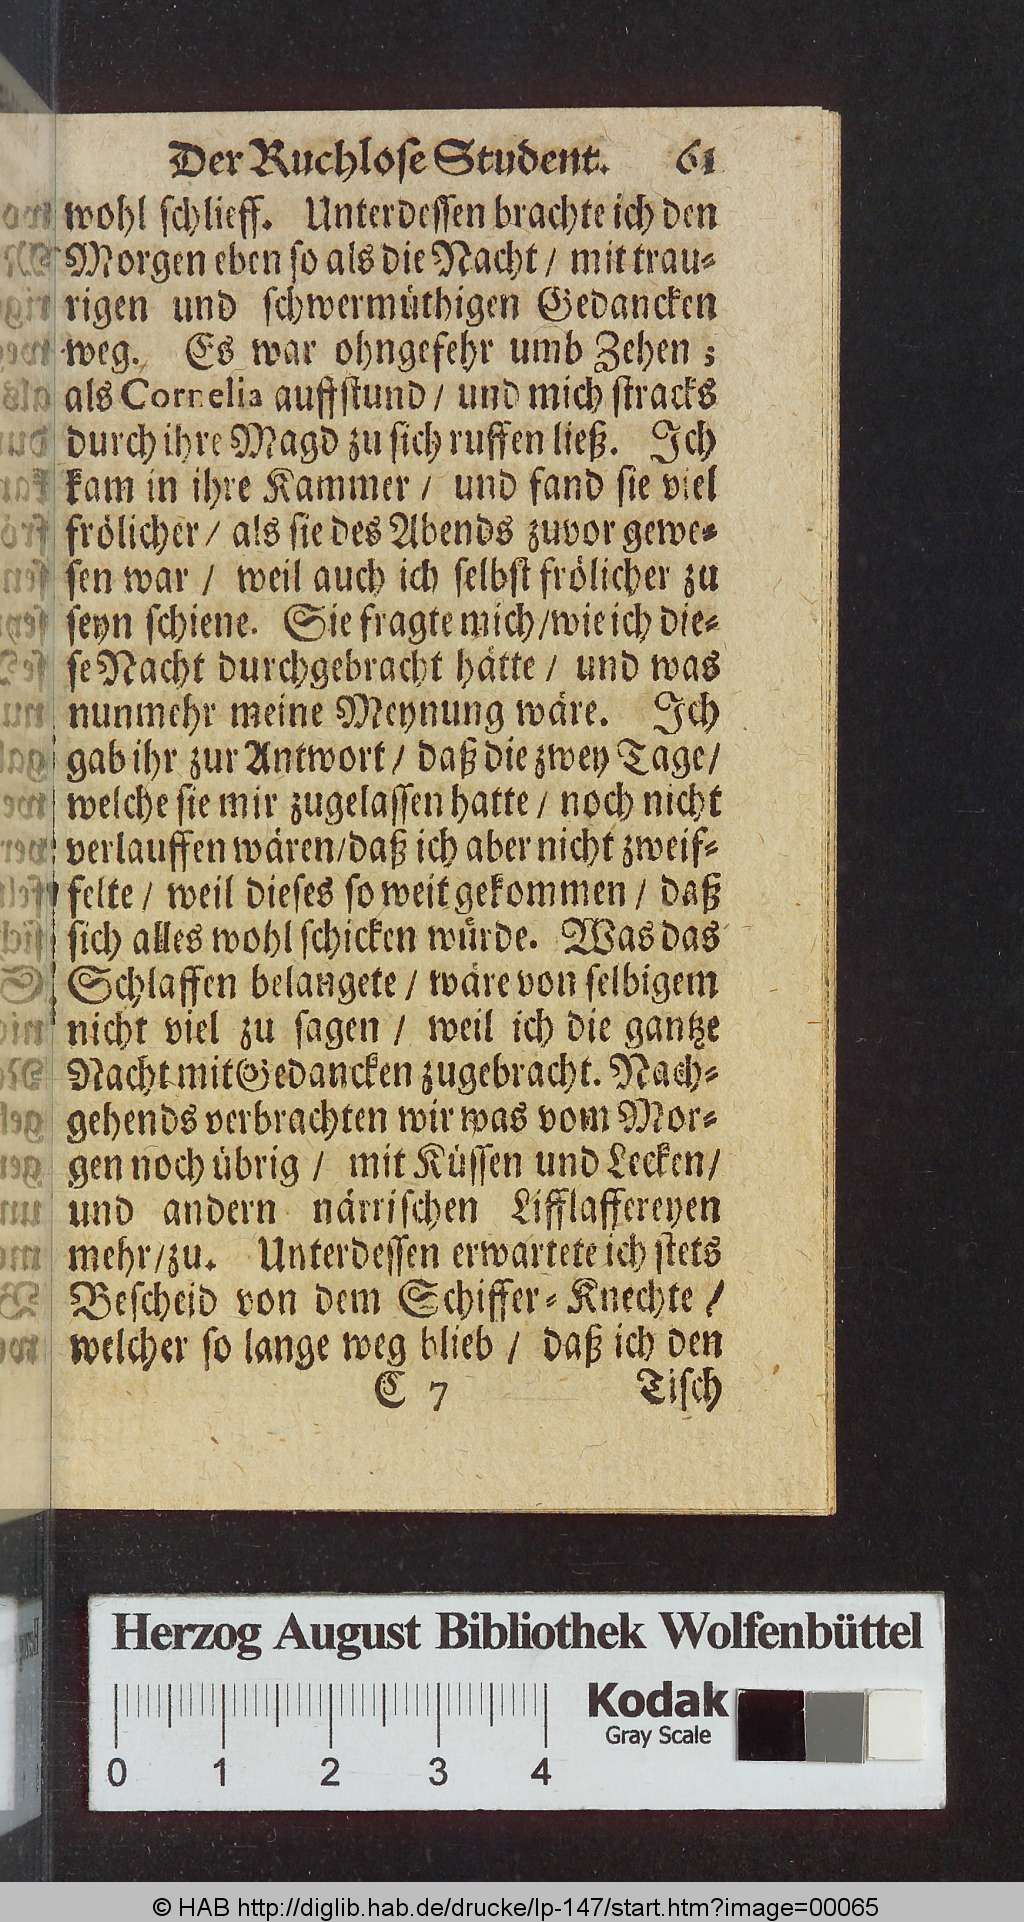 Der Ruchlose Student. 61
wohl schlieff. Unterdessen brachte ich den
Morgen eben so als die Nacht / mit trau-
rigen und schwermüthigen Gedancken
weg. Es war ohngefehr umb Zehen ;
als Cornelia auffstund / und mich stracks
durch ihre Magd zu sich ruffen ließ. Ich
kam in ihre Kammer / und fand sie viel
frölicher / als sie des Abends zuvor gewe-
sen war / weil auch ich selbst frölicher zu
seyn schiene. Sie fragte mich/wie ich die-
se Nacht durchgebracht hätte / und was
nunmehr meine Meynung wäre. Ich
gab ihr zur Antwort / daß die zwey Tage/
welche sie mir zugelassen hatte / noch nicht
verlauffen wären/daß ich aber nicht zweif-
felte / weil dieses so weit gekommen / daß
sich alles wohl schicken würde. Was das
Schlaffen belangete / wäre von selbigem
nicht viel zu sagen / weil ich die gantze
Nacht mit Gedancken zugebracht. Nach-
gehends verbrachten wir was vom Mor-
gen noch übrig / mit Küssen und Lecken/
und andern närrischen Lifflaffereyen
mehr/zu. Unterdessen erwartete ich stets
Bescheid von dem Schiffer-Knechte /
welcher so lange weg blieb / daß ich den
C 7 Tisch
Herzog August Bibliothek Wolfenbüttel
Kodak
Gray Scale
0 1 2 3 4
© HAB http://diglib.hab.de/drucke/lp-147/start.htm?image=00065